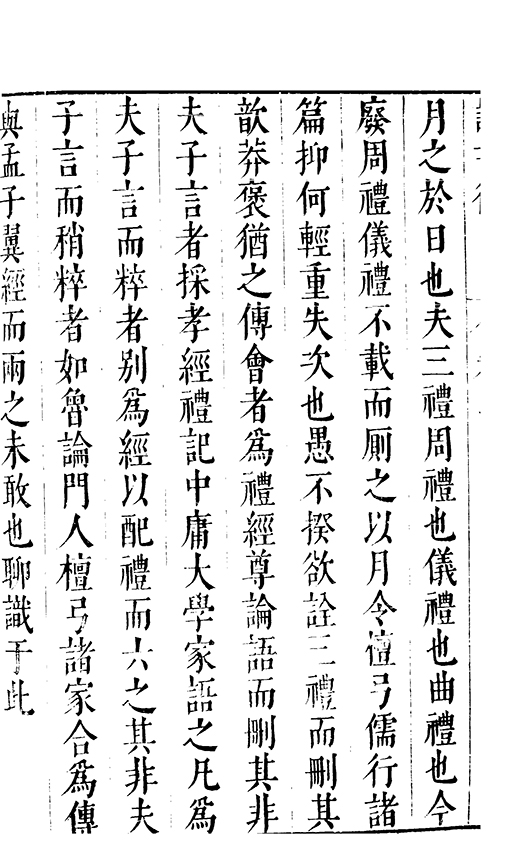 月之於日也夫三禮周禮也儀禮也曲禮也今
廢周禮儀禮不載而厠之以月令檀弓儒行諸
篇抑何輕重失次也愚不揆欲詮三禮而刪其
歆莽褒猶之傳會者爲禮經尊論語而刪其非
夫子言者採孝經禮記中庸大學家語之凡爲
夫子言而粹者別爲經以配禮而六之其非夫
子言而稍粹者如魯論門人檀弓諸家合爲傳
與孟子翼經而兩之未敢也聊識于此